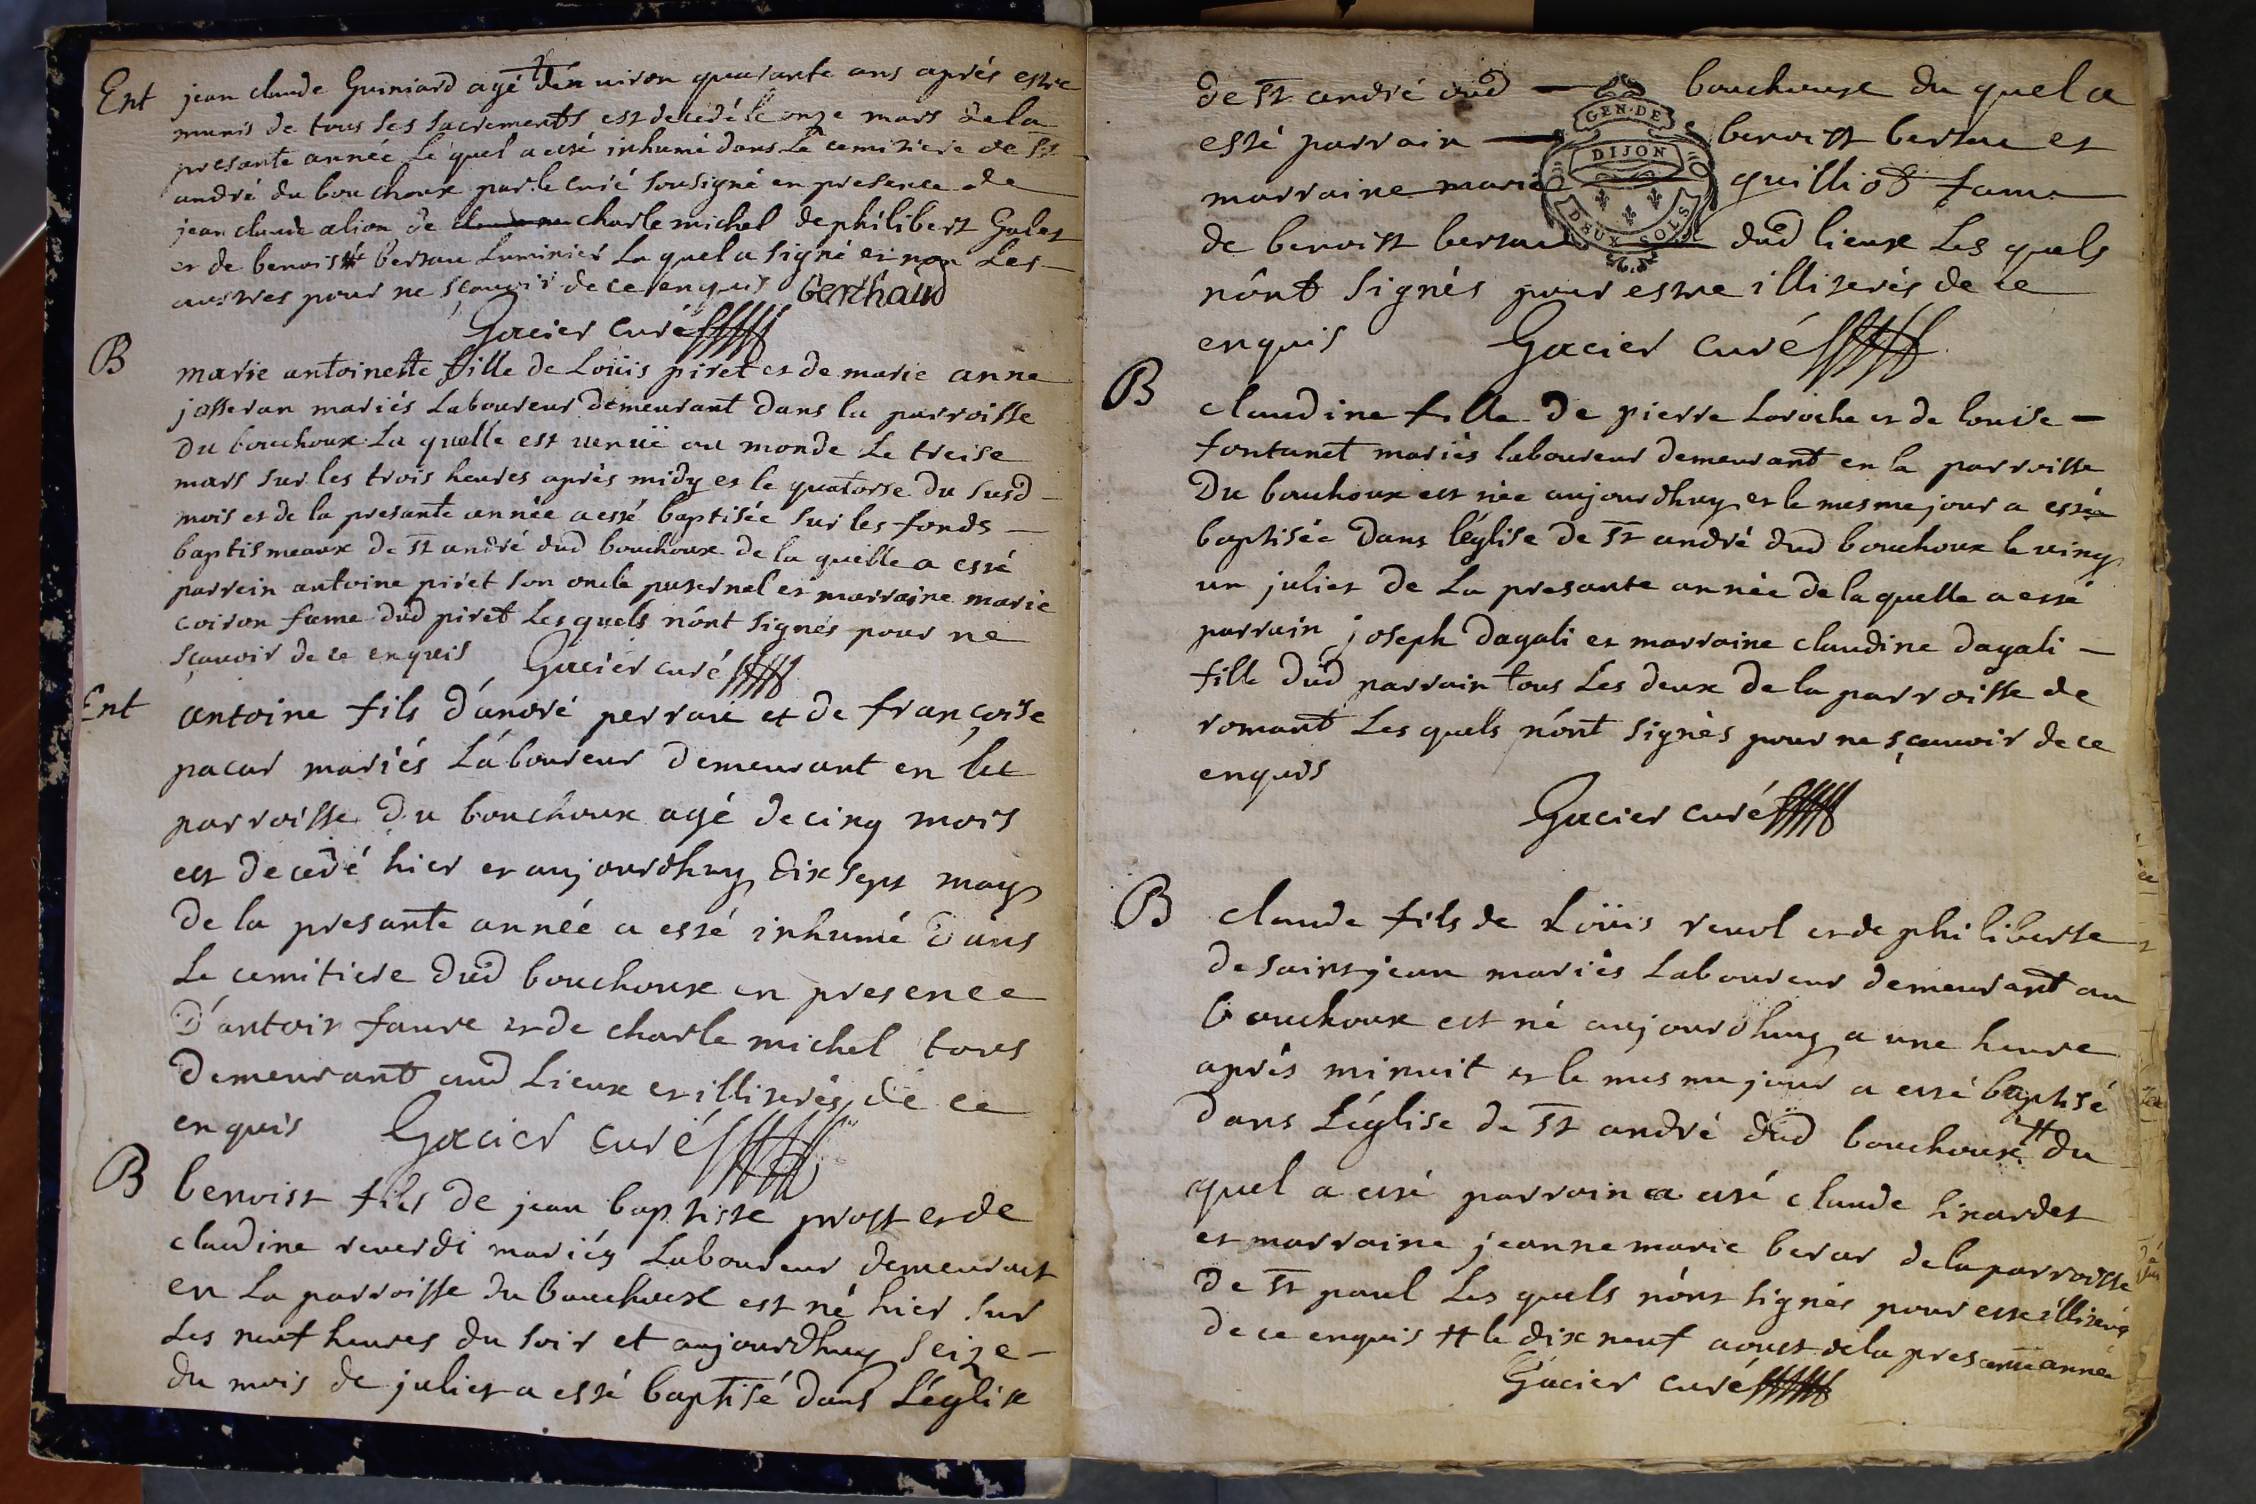 Ent jean claude Guiniard agé d'en uiron quarante ans aprés estre
munis de tous ses sacrements est decedé le onze mars de la
presante année Le quel a esté inhumé dans Le cemitiere de st
andré du bouchoux par le curé sousigné en presence de
jean claude alion de charle michel de philibert Galet
et de benoist bertau Luminier La quel a signé et non Les
austres pour ne sçauoir de ce enquis Berthaud
Gacier curé
B marie antoinette fille de Loüis piret et de marie anne
josseran mariés Laboureur demeurant dans la parroisse
du bouchoux La quelle est uenuë au monde Le treise
mars sur les trois heures aprés midy et le quatorse du susd
mois et de la presante année a esté baptisée sur les fonds
baptismeaux de st andré dud bouchoux de la quelle a esté
parrein antoine piret son oncle paternel et marraine marie
coiron fame dud piret Les quels n'ont signés pour ne
sçauoir de ce enquis Gacier curé
Ent antoine fils d'andré perraut et de françoise
pacar mariés Laboureur demeurant en la
parroisse du bouchoux agé de cinq mois
est decedé hier et aujourdhuy dix sept may
de la presante année a esté inhumé dans
Le cemitiere dud bouchoux en presence
D'antoin faure et de charle michel tous
demeurant aud Lieux et illiterés de ce
enquis Gacier curé
B benoist fils de jean baptiste prost et de
claudine reuerdi mariés Laboureur demeurant
en La parroisse du bouchoux est né hier sur
Les neuf heures du soir et aujourdhuy seize
du mois de juliet a esté baptisé dans L'eglise
de st andré dud bouchoux du quel a
esté parrain benoist bertau et
marraine marie guilliot fame
de benoist bertau dud lieux Les quels
n'ont signés pour estre illiterés de ce
enquis Gacier curé
GEN·DE
DIJON
DEUX SOLS
B claudine fille de pierre Laroche et de louise
fontanet mariés laboureur demeurant en la parroisse
Du bouchoux est née aujourdhuy et le mesme jour a esté
baptisée dans l'église de st andré dud bouchoux le uingt
un juliet de La presante année de la quelle a esté
parrain joseph dagali et marraine claudine dagali
fille dud parrain tous Les deux de la parroisse de
romant Les quels n'ont signés pour ne sçauoir de ce
enquis
Gacier curé
B claude fils de Loüis reuol et de philiberte
de saint jean mariés Laboureur demeurant au
bouchoux est né aujourdhuy a une heure
aprés minuit et le mesme jour a esté baptisé
dans L'église de st andré dud bouchoux # du
quel a esté parrain a esté claude
et marraine jeanne marie berar de la parroisse
de st paul Les quels n'ont signés pour estre illiterés
de ce enquis # le dix neuf aoust de la presante année
Gacier curé